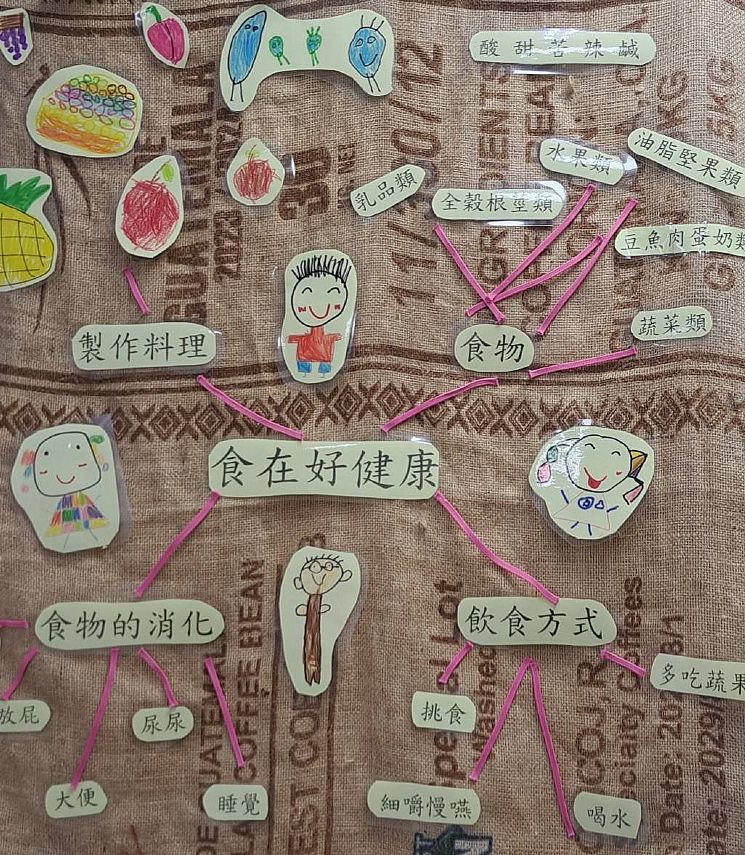 酸甜苦辣鹹
水果類
油脂堅果類
乳品類
全穀根莖類
豆魚肉蛋奶類
蔬菜類
製作料理
食物
食在好健康
食物的消化
飲食方式
放屁
尿尿
大便
睡覺
挑食
多吃蔬果
細嚼慢嚥
喝水
GUATEMALA
2023
30
11/300/12
GUATEMALA
COFFEE BEAN
Specialty Coffees